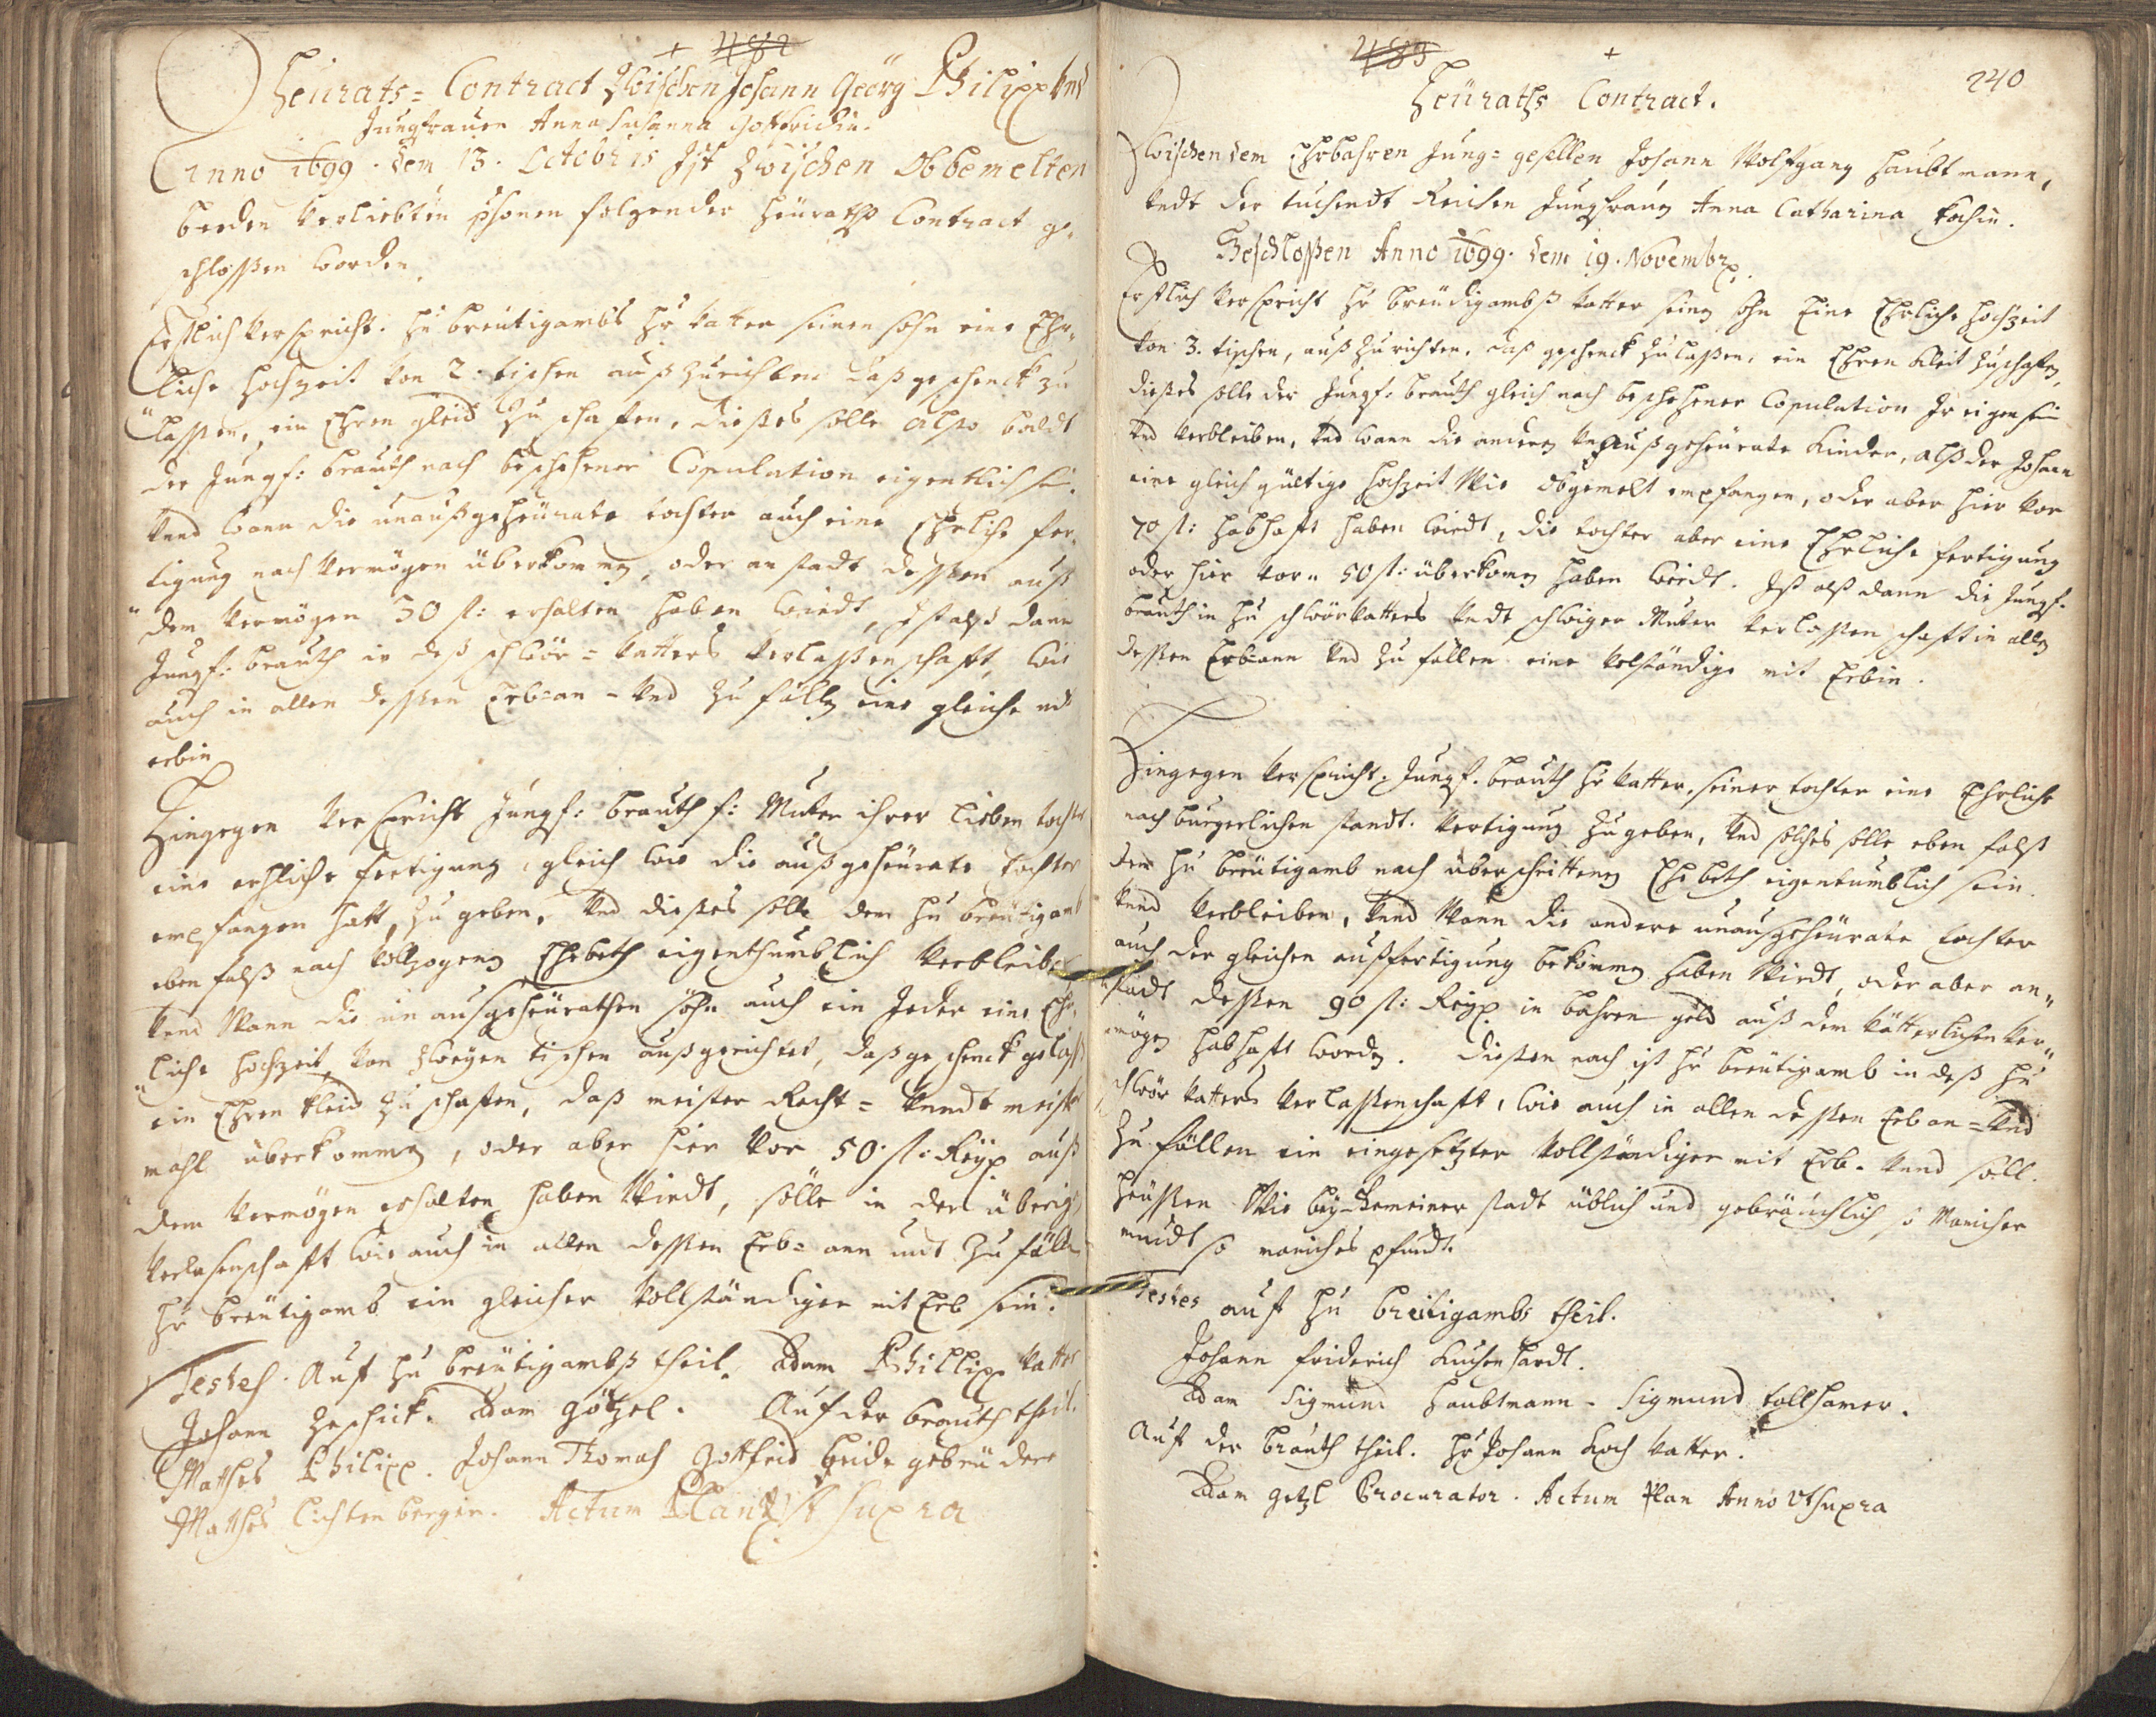 + 482
Heurats= Contract Zwischen Johann Georg Philipp vnd
Jungfrauen Anna Susanna Gottfridin.
Anno 1699. dem 13. Octobris Ist Zwischen Obbemelten
beeden Verliebten pschonen folgender Heuraths Contract ge-
schlossen worden.
Erstlich Verspricht. Hn breütigambs Hr vatter seinen sohn eine Ehr-
liche Hochzeit von 2. tischen auß Zurichten daß geschenck zu
lassen, ein Ehren gleid Zu schaffen, dießes solle also baldt
der Jungf: brauth nach beschehener Copulation eigentlich sein.
Vnnd wann die unaußgeheürate tochter auch eine Ehrliche fer-
tigung nach Vermögen überkommen, oder anstadt dessen auß
dem Vermögen 50 fl: erhalten haben wirdt, Ist alß dann
Jungf: brauth in deß schwör= Vatters Verlaßenschafft, wie
auch in allen dessen Erb=an= Vnd Zu fällen eine gleiche mit
erbin
Hingegen Verspricht Jungf: brauth f: Mutter ihrer lieben tochter
eine ehrliche fertigung, gleich wie die außgeheürate tochter
empfangen hatt, Zu geben, Vnd dießes solle dem Hn breütigamb
eben falß nach Vollzogenen Ehebeth eigenthumblich Verbleiben
Vnnd Wann die un ausgeheürathen söhn auch ein Jeder eine Ehr-
liche Hochzeit, von Zweyen tischen außgerichtet, daß geschenck gelassen
ein Ehren kleid Zu schaffen, daß meister Recht= Vnndt meister
mahl überkommen, oder aber hier vor 50. fl: Reyx auß
dem Vermögen erhalten haben Wirdt, solle in der überigen
Verlasenschafft wie auch in allen dessen Erb= ann und Zu fällen
Hr breütigamb ein gleicher Vollständiger mit Erb sein.
Testes. Auf Hn breütigambß theil. Adam Phillipp Vatter
Johann Zeschick. Adam Götzel. Auf der brauth theil.
Mathes Philipp. Johann Thomas Gottfrid beide gebrüdere
Mathes Lichtenberger. Actum Plan Vt Supra
483 +
240
Heüraths Contract.
Zwischen dem Ehrbahren Jung= gesellen Johann Wolfgang Haubtmann,
Vndt der tuchendt Reichen Jungfrauen Anna Catharina Kochin.
Beschloßen Anno 1699. dem 19. Novembr.
Erstlich Verspricht Hr breüdigambß Vatter seinen sohn Eine Ehrliche Hochzeit
von 3. tischen, auß Zu richten, daß geschenck Zu laßen, ein Ehren kleit Zuschaffen,
dießes solle der Jungf: brauth gleich nach beschehener Copulation Ir eigen sein
Vnd Verbleiben, Vnd wann die anderen Vnaußgeheürate Kinder, alß der Johann
eine gleich gültige Hochzeit Wie obgemelt empfangen, oder aber hier vor
70 fl: habhafft haben wirdt, die tochter aber eine Ehrliche fertigung
oder hier vorn 50 fl: überkomen haben wirdt. Ist alß dann die Jungf.
brauth in Hn schwör Vatters Vndt schwiger Mutter Verlaßenschafft in allen
dessen Erb=ann Vnd Zu fällen eine Volständige mit Erbin.
Hingegen Verspricht. Jungf. brauth Hr Vatter, seiner tochter eine Ehrliche
nach burgerlichen standt. Vertigung Zu geben, Vnd solches solle eben falß
dem Hn breütigamb nach überschrittenen Ehebeth eigentumblich sein.
Vnnd Verbleiben, Vnnd Wann die andere unaußgeheürate tochter
auch der gleichen außfertigung bekommen haben Wirdt, oder aber an-
stadt dessen 90 fl: Reyx in bahren geld auß dem Vätterlichen Ver-
mögen habhafft worden. Diesem nach ist Hr breütigamb in deß Hn
schwör Vatters Verlassenschafft, wie auch in allen dessen Erb an= Vnd
Zu fällen ein eingesetzter Vollständiger mit Erb. Vnnd soll.
heüssen Wie bey Gemeiner stadt üblich und gebräuchlich so Maniches
mündt so maniches pfundt.
Testes auf Hn breütigambs theil.
Johann friderich Kuchenhardt.
Adam Sigmund Haubtmann. Sigmund tollhamer.
Auf der brauth theil. Hr Johann Koch Vatter.
Adam Getzl Procurator. Actum Plan Anno Vt supra